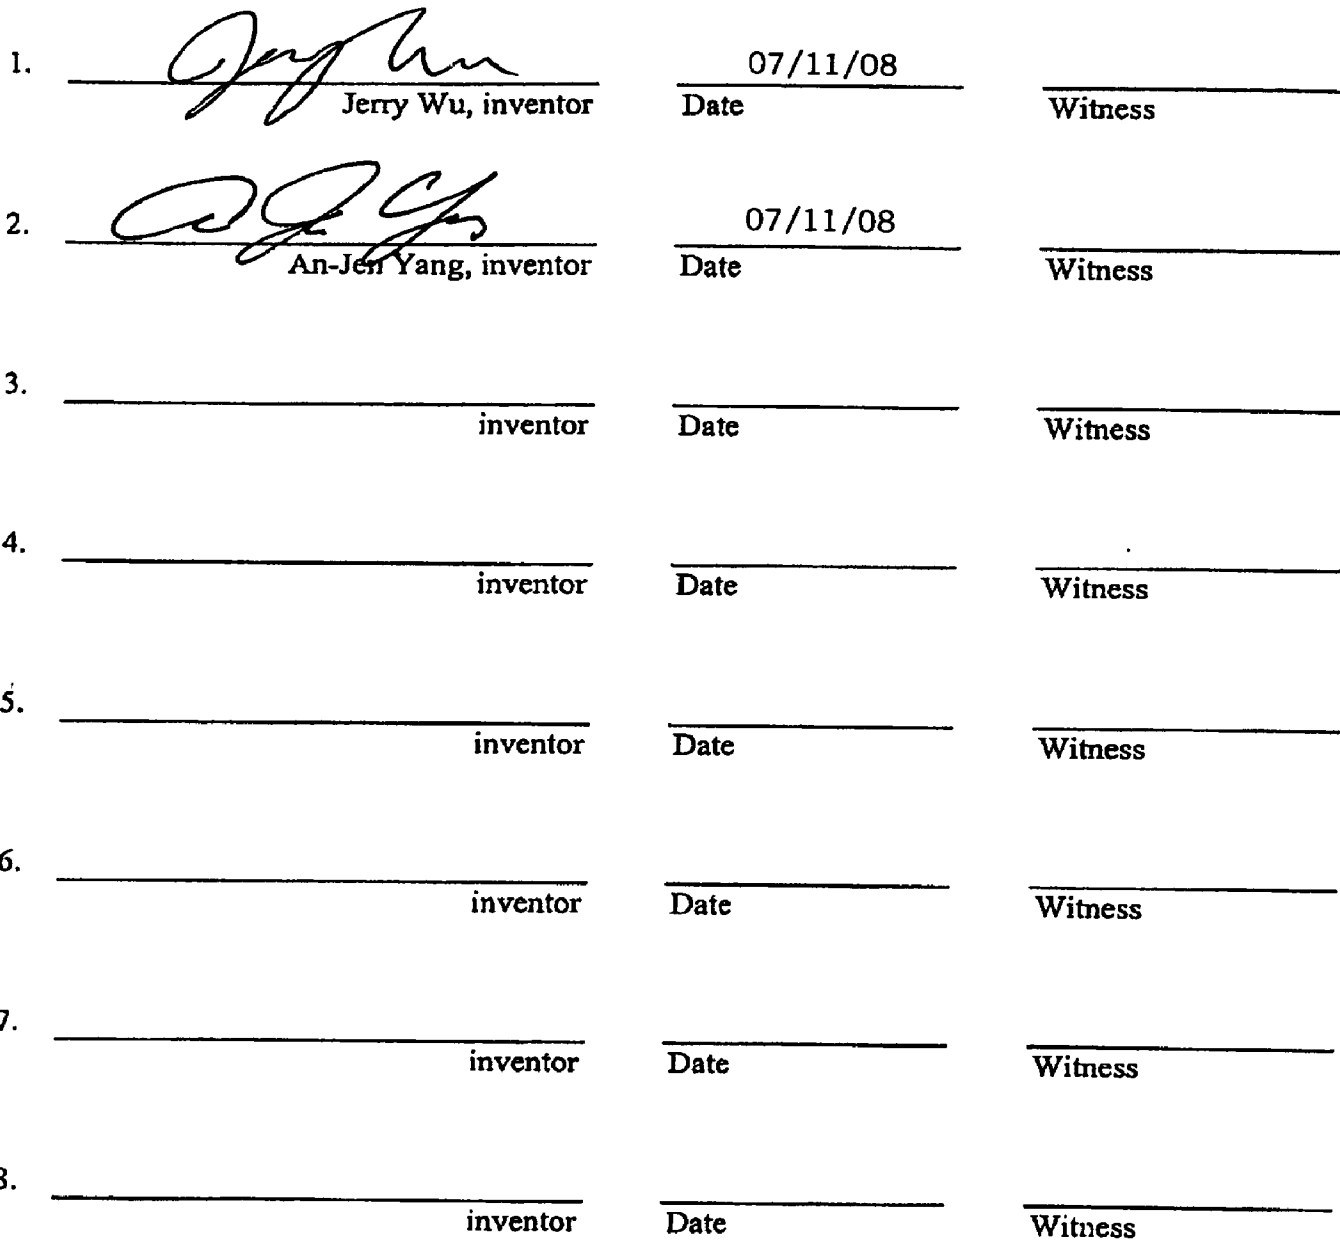 1. Jerry Wu 07/11/08
Jerry Wu, inventor Date Witness
2. An-Jen Yang 07/11/08
An-Jen Yang, inventor Date Witness
3.
inventor Date Witness
4.
inventor Date Witness
5.
inventor Date Witness
6.
inventor Date Witness
7.
inventor Date Witness
8.
inventor Date Witness